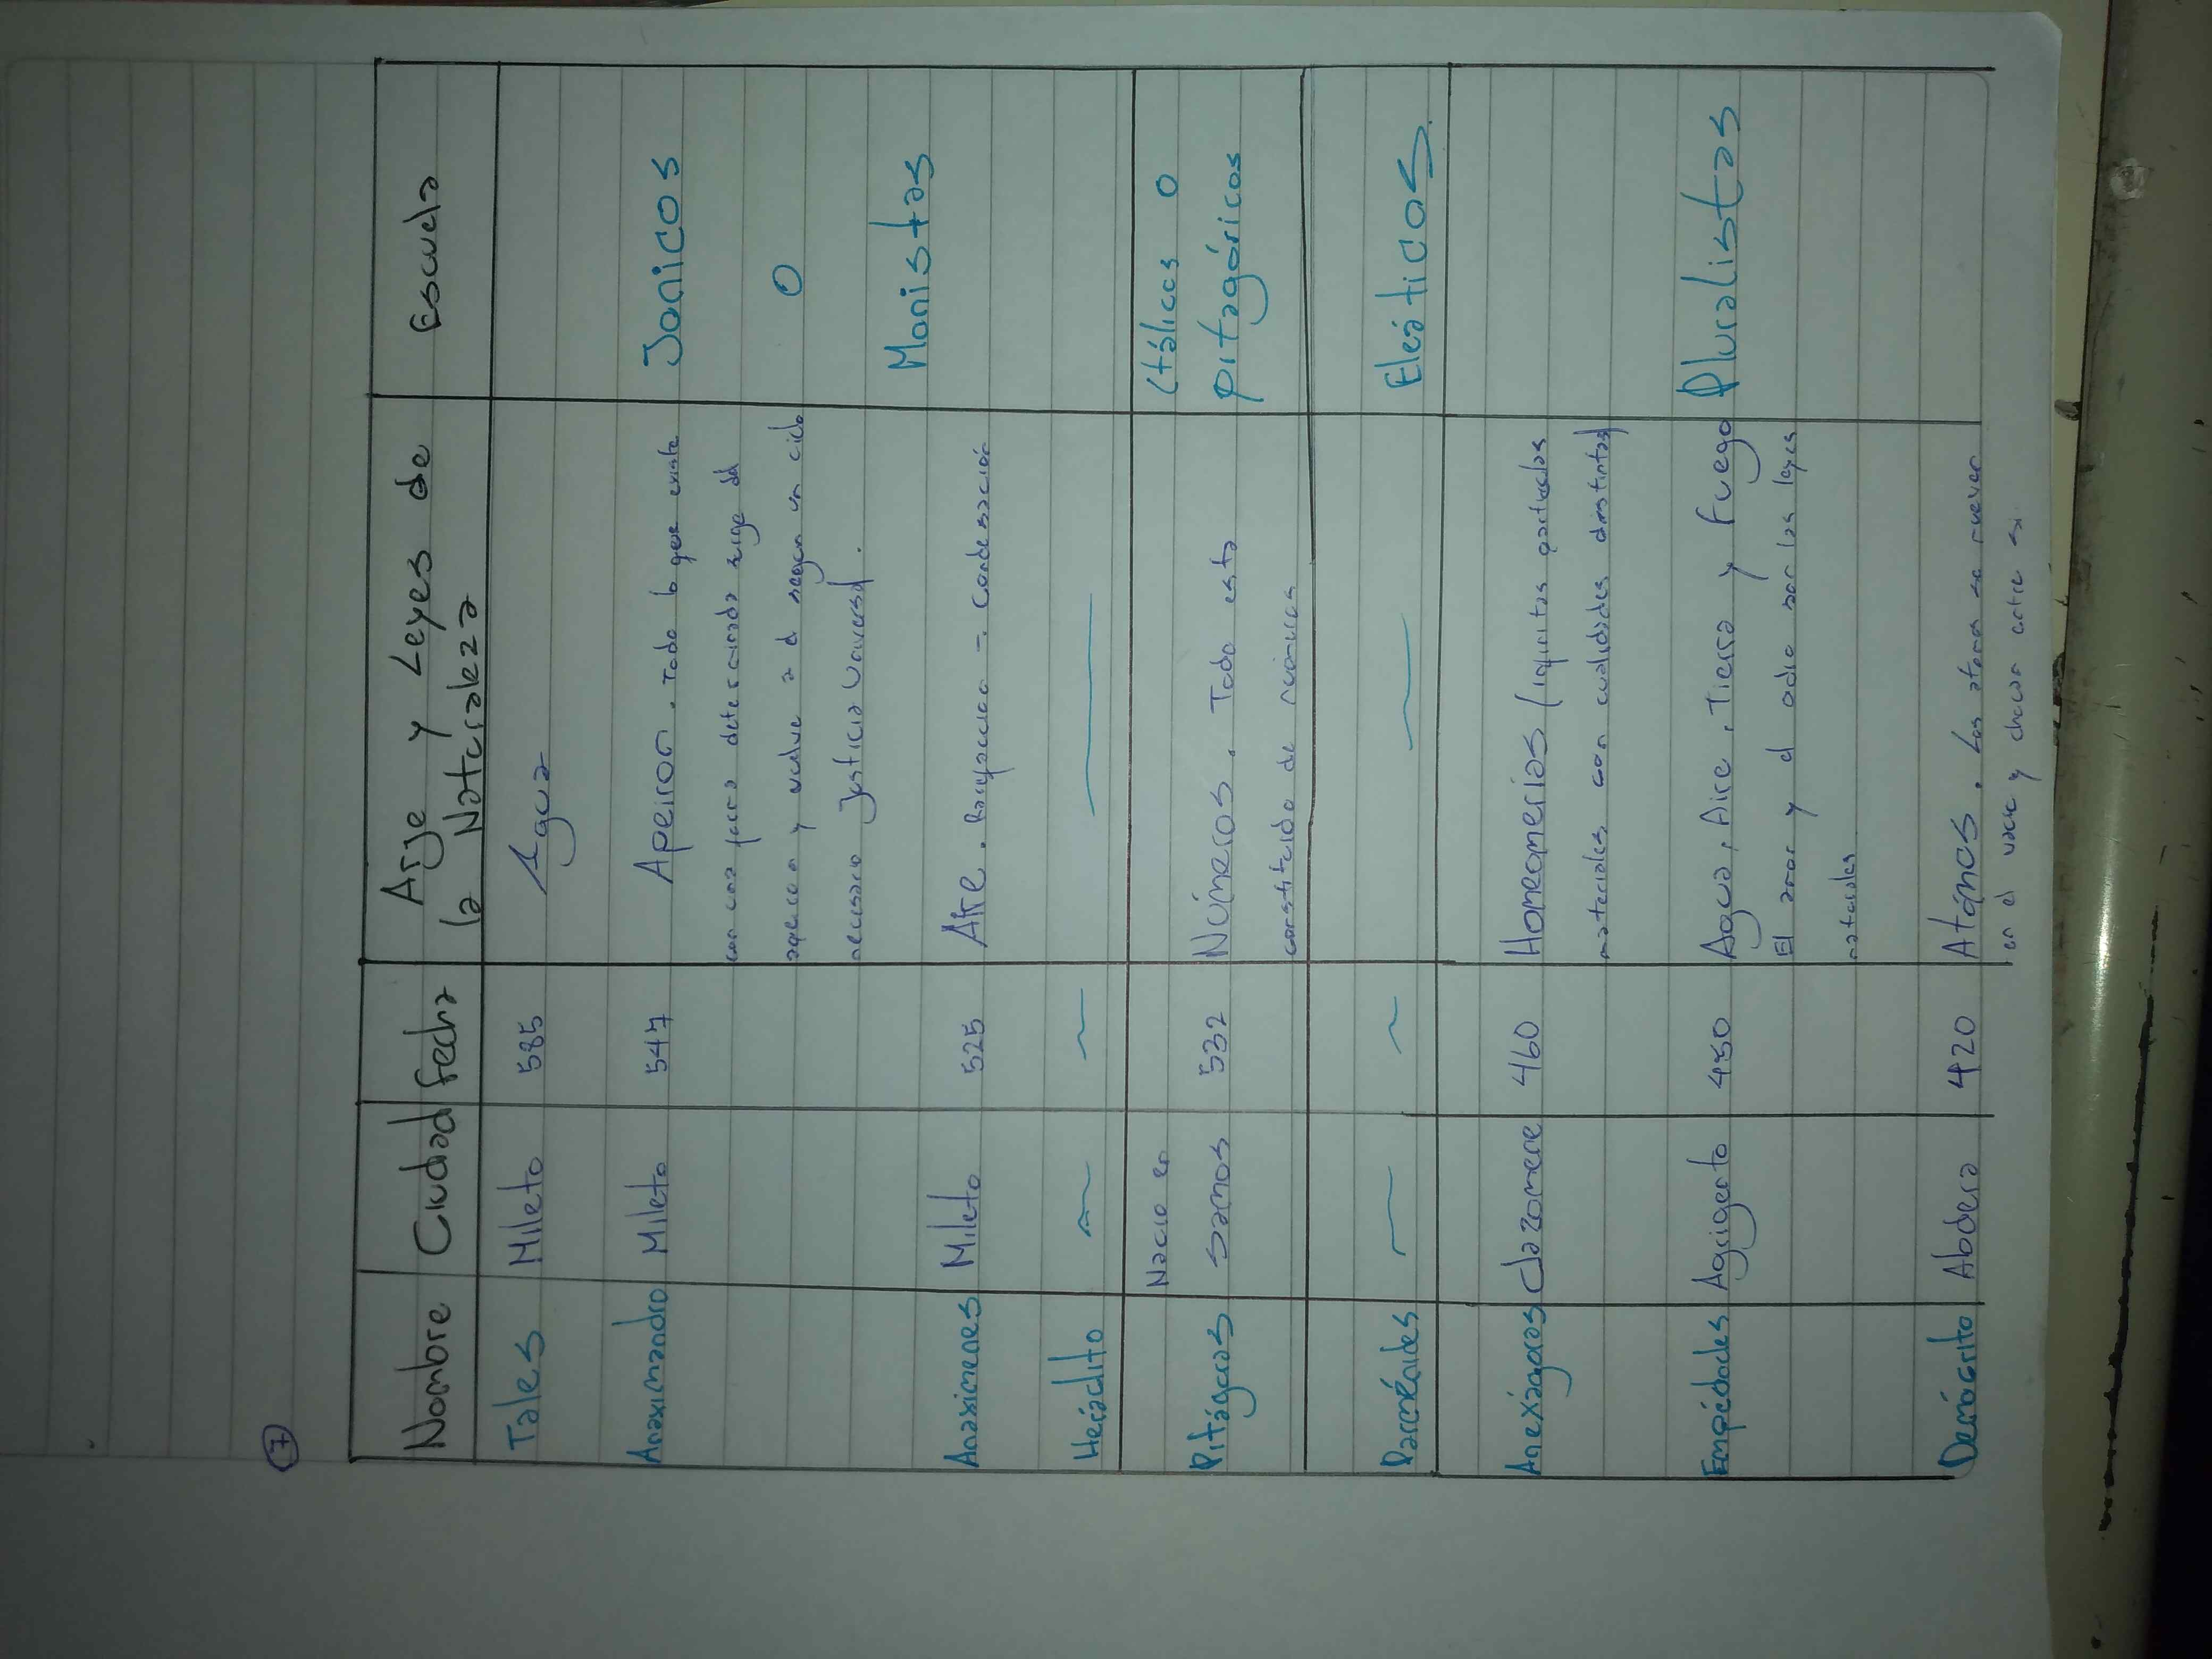 7
Nombre Ciudad fecha Arje y Leyes de la Naturaleza Escuela
Tales Mileto 585 Agua
Anaximandro Mileto 547 Apeiron. Todo lo que existe Jonicos
con una forma determinada surge del
apeiron y vuelve a el segun un ciclo O
necesario justicia universal.
Monistas
Anaximenes Mileto 525 Aire. - Condensación
Heráclito
Nacio en Itálicos o
Pitágoras Samos 532 Números. Todo esta pitagóricos
constituido de números
Parménides Eleáticos.
Anexágoras Clazomene 460 Homeomerías (infinitas particulas
materiales con cualidades distintas)
Empédocles Agrigento 450 Agua, Aire, Tierra y Fuego Pluralistas
El amor y el odio son las leyes
naturales
Demócrito Abdera 420 Atámos. Los atomos se mueven
en el vacio y chocan entre si.